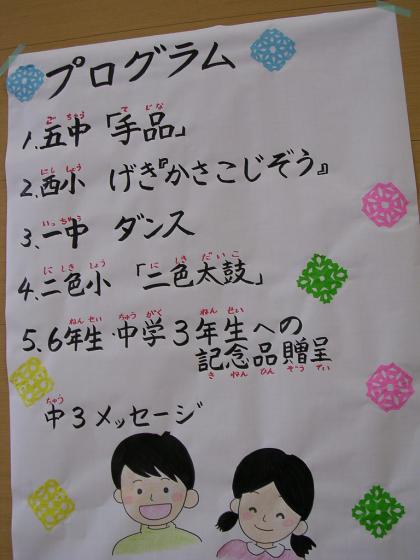 プログラム
ご ちゅう て じな
1.五中「手品」
にし しょう
2.西小 げき『かさこじぞう』
いっ ちゅう
3.一中 ダンス
に しき しょう に しき だいこ
4.二色小「二色太鼓」
ねん せい ちゅう がく ねん せい
5.6年生・中学3年生への
記念品贈呈
き ねん ひん ぞう てい
ちゅう
中3メッセージ